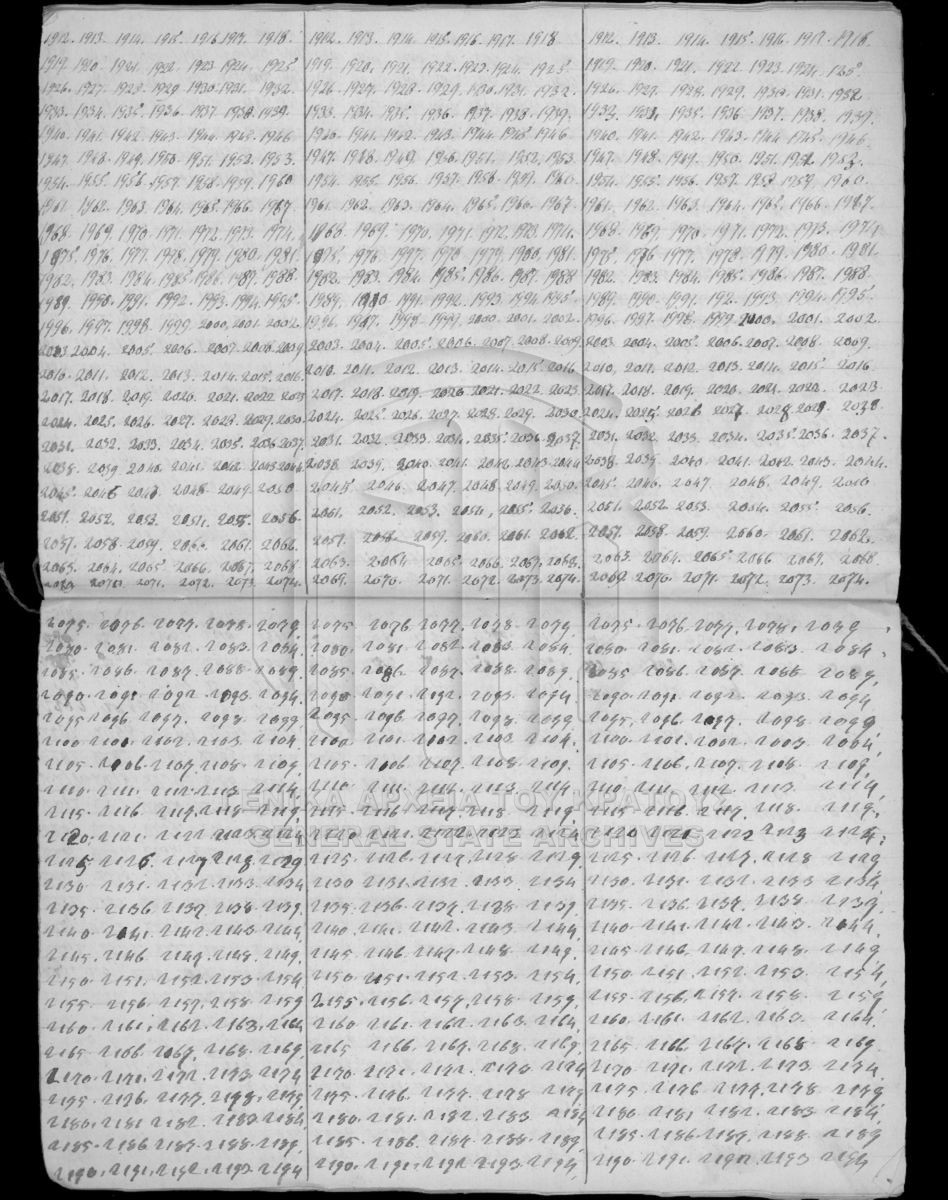 1912. 1913. 1914. 1915. 1916 1917. 1918. 1912. 1913. 1914. 1915. 1916. 1917. 1918 1912. 1913. 1914. 1915. 1916. 1917. 1918.
1919 1920 1921. 1922. 1923 1924. 1925 1919. 1920. 1921. 1922. 1923. 1924. 1925. 1919. 1920. 1921. 1922 1923. 1924.
1926. 1927. 1928. 1929. 1930. 1931. 1932 1926. 1927. 1928. 1929. 1930. 1931. 1932. 1926. 1927. 1928. 1929. 1930. 1931. 1932.
1933. 1934. 1935. 1936. 1937. 1938. 1939. 1933. 1934. 1935. 1936. 1937. 1938. 1939. 1935. 1936. 1937. 1938. 1939.
1940. 1941. 1942. 1943. 1944. 1945. 1946 1940. 1941. 1942. 1943. 1944. 1945. 1946. 1940. 1941. 1942. 1943. 1944. 1945. 1946.
1947. 1948. 1949. 1950. 1951. 1952. 1953. 1947. 1948. 1949. 1950. 1951. 1952. 1953. 1947. 1948. 1949. 1950. 1951. 1952. 1953.
1954. 1955. 1956. 1957. 1958. 1959. 1960 1954. 1955. 1956. 1957. 1958. 1959. 1960. 1954. 1955. 1956. 1957. 1958. 1959. 1960.
1961. 1962. 1963. 1964. 1965. 1966. 1967. 1961. 1962. 1963. 1964. 1965. 1966. 1967. 1961. 1962. 1963. 1964. 1965. 1966. 1967.
1968. 1969. 1970. 1971. 1972. 1973. 1974. 1968. 1969. 1970. 1971. 1972. 1973. 1974. 1968. 1969. 1970. 1971. 1972. 1973. 1974
1975. 1976. 1977. 1978. 1979. 1980. 1981. 1975. 1976. 1977. 1978. 1979. 1980. 1981. 1975. 1976. 1977. 1978. 1979. 1980. 1981.
1982. 1983. 1984. 1985. 1986. 1987. 1988. 1982. 1983. 1984. 1985. 1986. 1987. 1988 1982. 1983. 1984. 1985. 1986. 1987. 1988
1989. 1990. 1991. 1992. 1993. 1994. 1995. 1989. 1990 1991. 1992. 1993. 1994. 1995. 1989. 1990. 1991. 1993. 1994. 1995.
1996. 1997. 1998. 1999. 2000. 2001. 2002. 1996. 1997. 1998. 1999. 2000. 2001. 2002. 1996. 1997. 1998. 1999. 2000. 2001. 2002.
2003 2004. 2005. 2006. 2007. 2008. 2009. 2003. 2004. 2005. 2006. 2007. 2008. 2009 2003. 2004. 2005. 2006. 2007. 2008. 2009.
2010. 2011. 2012. 2013. 2014. 2015. 2016. 2010. 2011. 2012. 2013. 2014. 2015. 2016. 2010. 2011. 2012. 2013. 2014. 2015. 2016.
2017. 2018. 2019. 2020. 2021. 2022. 2023 2017. 2018. 2019. 2020. 2021. 2022. 2023 2017. 2018. 2019. 2020. 2021. 2022. 2023
2024. 2025. 2026. 2027. 2028. 2029. 2030. 2024. 2025. 2026. 2027. 2028. 2029. 2030. 2024. 2025. 2026 2027 2028. 2029. 2030.
2031. 2032. 2033. 2034. 2035. 2036. 2037. 2031. 2032. 2033. 2034. 2035. 2036. 2037. 2031. 2032. 2033. 2034. 2035. 2036. 2037.
2038. 2039. 2040. 2041. 2042. 2043. 2044 2038. 2039. 2040. 2041. 2042. 2043. 2044 2038. 2039. 2040. 2041. 2042. 2043. 2044.
2045. 2046 2047 2048. 2049. 2050 2045. 2046. 2047. 2048. 2049. 2050. 2045. 2046. 2047. 2048. 2049. 2050
2051. 2052. 2053. 2054. 2055. 2056. 2051. 2052. 2053. 2054. 2055. 2056. 2051. 2052. 2053. 2054. 2055. 2056.
2057. 2058. 2059. 2060. 2061. 2062. 2057. 2058. 2059. 2060. 2061. 2062. 2057. 2058. 2059. 2060. 2061. 2062.
2063. 2064. 2065. 2066. 2067. 2068 2063. 2064 2065. 2066. 2067. 2068. 2063. 2064. 2065. 2066 2067. 2068
2070. 2071. 2072. 2073. 2074. 2069. 2070. 2071. 2072. 2073. 2074. 2069 2070. 2071. 2072. 2073. 2074.
2075. 2076. 2077. 2078. 2079. 2075 2076 2077. 2078 2079. 2075. 2076. 2077. 2078. 2079
2080. 2081. 2082. 2083. 2084. 2080. 2081. 2082. 2083. 2084. 2080. 2081. 2082. 2083. 2084.
2085. 2086. 2087. 2088. 2089. 2085. 2086. 2087. 2088. 2089. 2085 2086. 2087. 2088 2089.
2090. 2091. 2092. 2093. 2094. 2090 2091. 2092. 2093. 2094 2090. 2091. 2092. 2093. 2094
2095 2096. 2097. 2098. 2099 2095. 2096 2097. 2098. 2099 2095. 2096. 2097. 2098. 2099
2100 2101. 2102. 2103. 2104. 2100 2101. 2102. 2103. 2104. 2100. 2101. 2002. 2003. 2004.
2105. 2106. 2107. 2108. 2109. 2105. 2106. 2107. 2108. 2109. 2105. 2106. 2107. 2108 2109.
2110. 2111. 2112. 2113 2114 2110 2111. 2112. 2113. 2114 2110. 2111. 2112 2113. 2114
2115. 2116 2117. 2118. 2119. 2115. 2116 2117. 2118. 2119. 2115. 2116. 2117. 2118. 2119.
2120. 2121. 2122 2123. 2124 2120. 2121. 2122. 2123 2124 2120 2121. 2122 2123 2124.
2125 2126. 2127 2128. 2129 2125. 2126. 2127. 2128 2129. 2125. 2126. 2127. 2128 2129.
2130 2131. 2132. 2133. 2134 2130 2131. 2132. 2133 2134 2130. 2131. 2132. 2133 2134.
2135. 2136. 2137. 2138. 2139. 2135. 2136. 2137. 2138. 2139. 2135. 2136. 2137. 2138. 2139
2140. 2141. 2142. 2143. 2144. 2140. 2141. 2142. 2143 2144 2140 2141. 2142. 2143. 2144.
2145. 2146 2147. 2148. 2149. 2145. 2146. 2147. 2148. 2149. 2145 2146. 2147. 2148. 2149
2150 2151. 2152. 2153. 2154 2150 2151. 2152. 2153. 2154. 2150. 2151. 2152. 2153. 2154.
2155. 2156. 2157. 2158. 2159 2155. 2156. 2157. 2158. 2159. 2155. 2156. 2157. 2158. 2159
2160. 2161. 2162. 2163. 2164 2160 2161. 2162. 2163. 2164. 2160. 2161 2162. 2163. 2164.
2165 2166. 2167. 2168. 2169. 2165 2166. 2167. 2168. 2169 2165. 2166. 2167. 2168 2169.
2170. 2171. 2172. 2173. 2174 2170 2171. 2172. 2173. 2174 2170. 2171. 2172. 2173. 2174.
2175. 2176. 2177. 2178. 2179. 2175. 2176. 2177. 2178 2179. 2175. 2176. 2177. 2178 2179
2180. 2181. 2182. 2183. 2184. 2180. 2181. 2182. 2183 2184 2180 2181. 2182. 2183. 2184.
2185. 2186 2187. 2188. 2189. 2185. 2186. 2187. 2188. 2189. 2185. 2186. 2187. 2188. 2189
2190. 2191. 2192. 2193. 2194 2190. 2191. 2192. 2193. 2194 2190. 2191. 2192. 2193 2194
ΓΕΝΙΚΑ ΑΡΧΕΙΑ ΤΟΥ ΚΡΑΤΟΥΣ
GENERAL STATE ARCHIVES